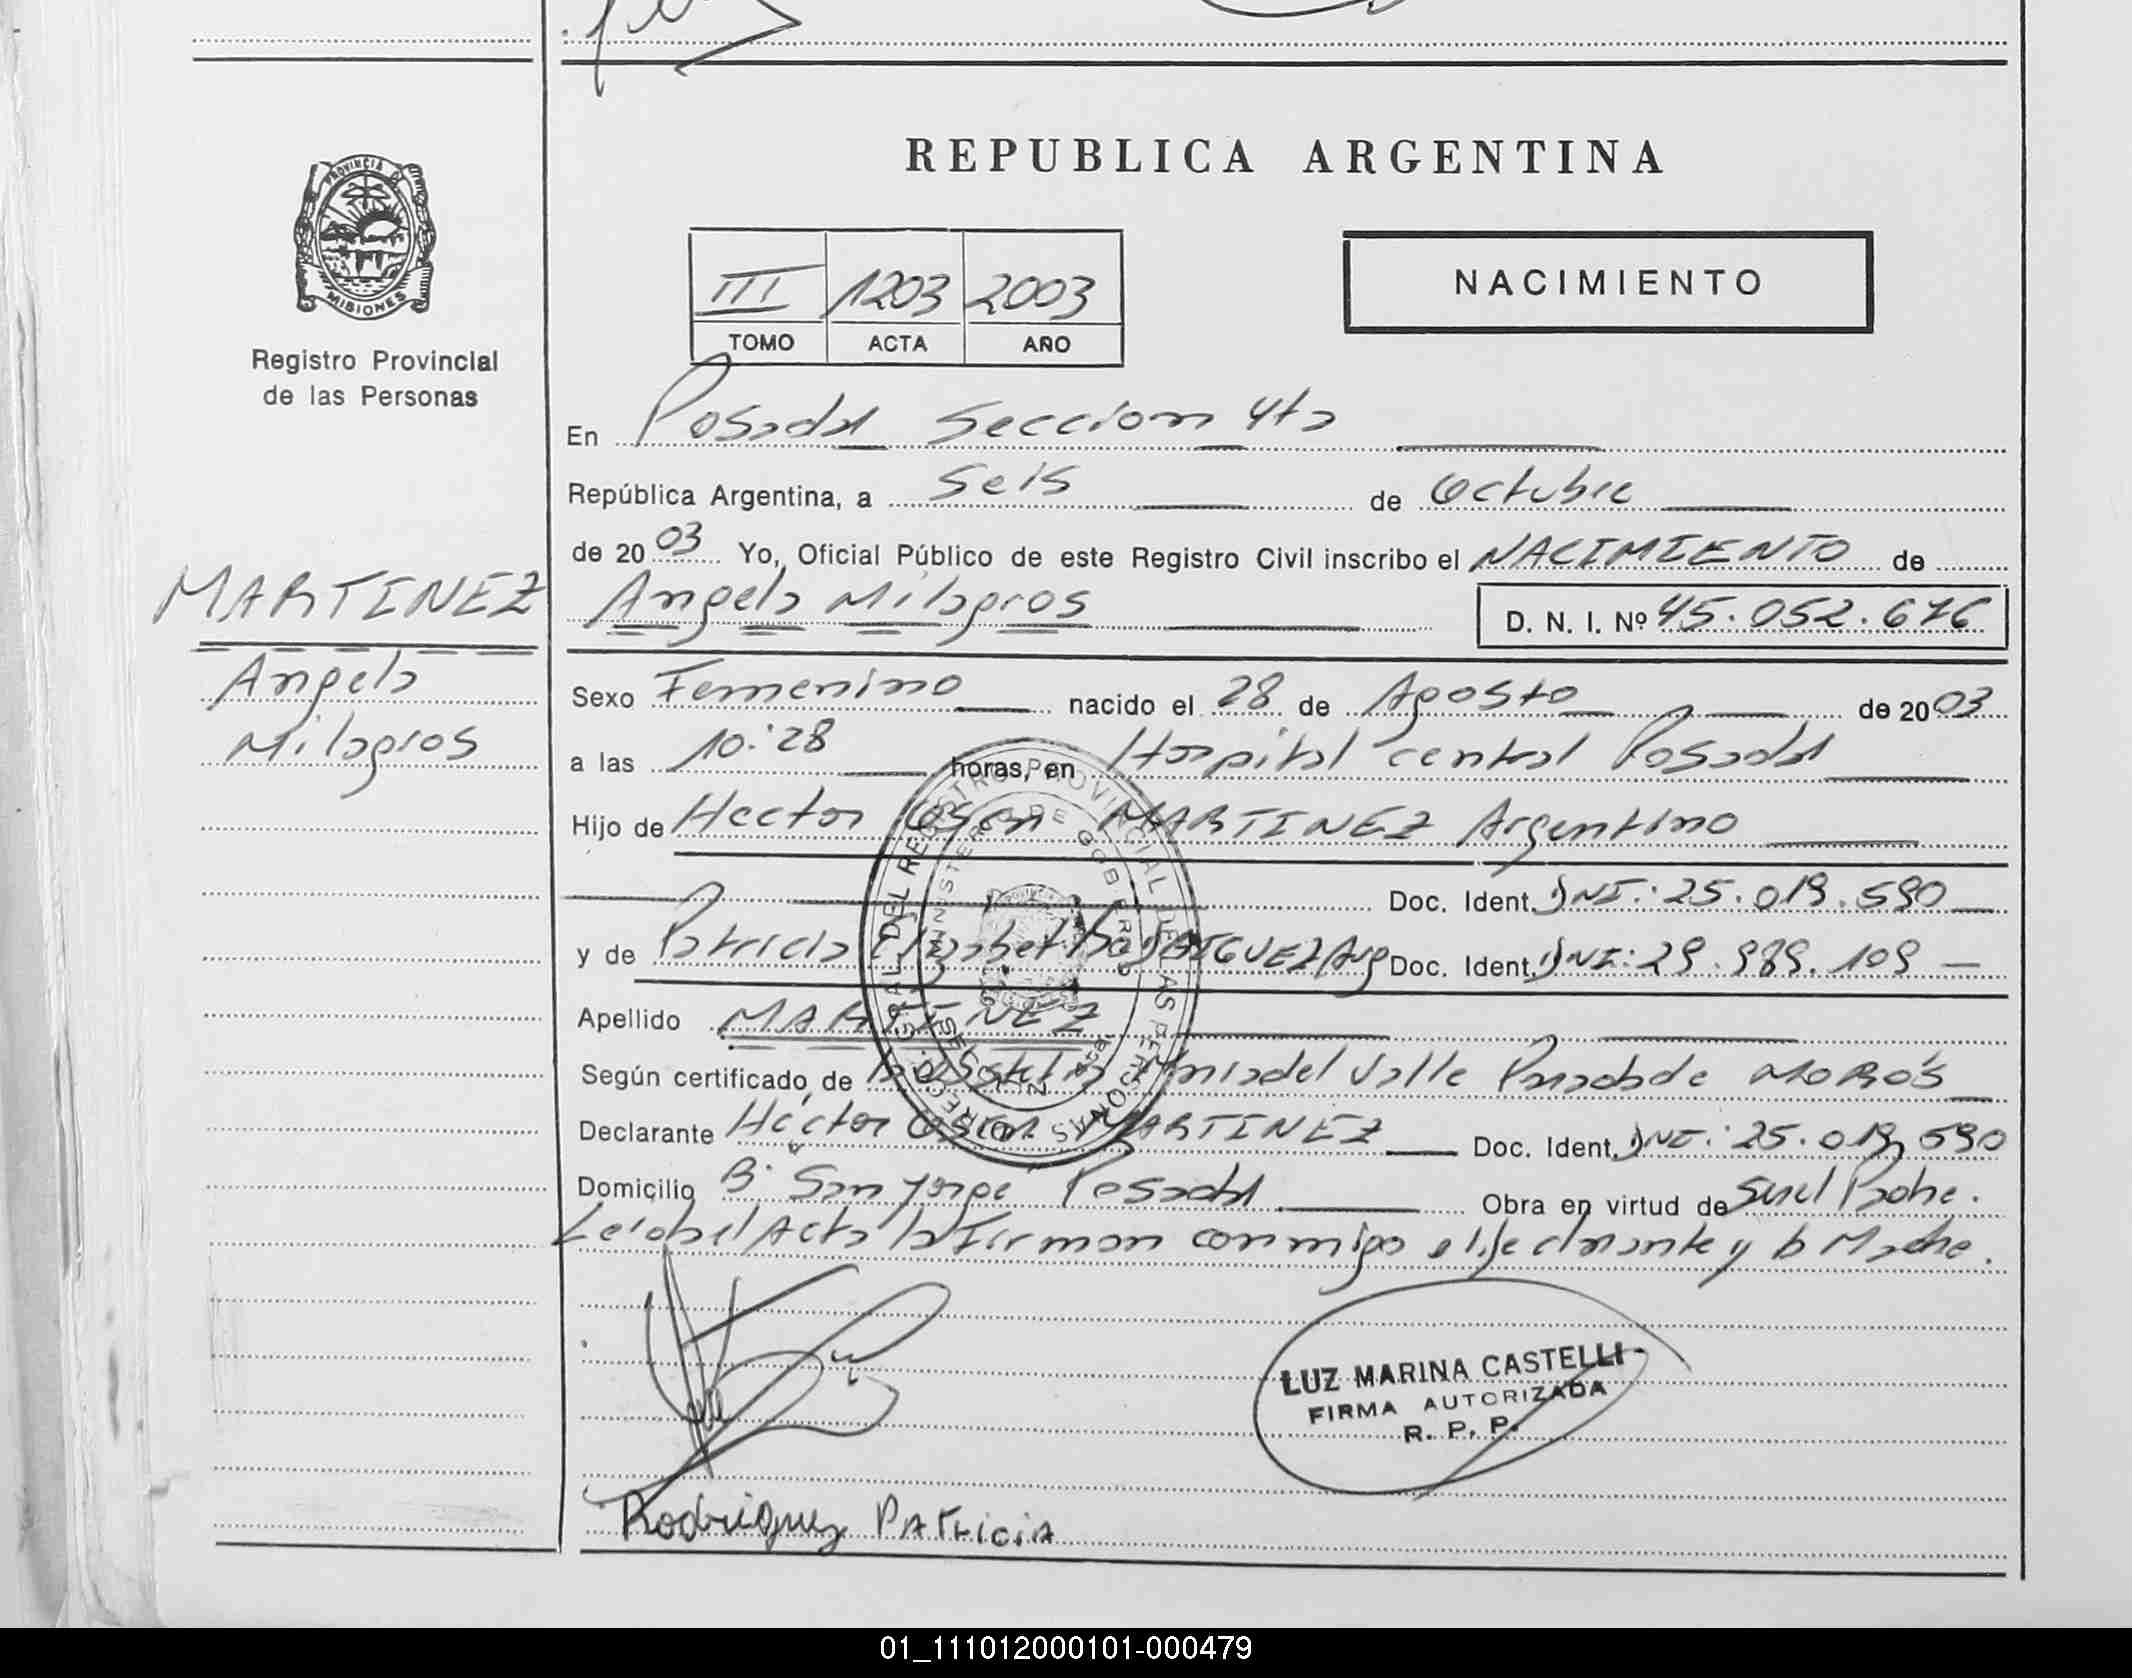 REPUBLICA ARGENTINA
PROVINCIA DE
MISIONES
Registro Provincial
de las Personas
III 1203 2003
TOMO ACTA AÑO
NACIMIENTO
En Posadas Seccion 4ta
República Argentina, a Seis de Octubre
de 2003 Yo, Oficial Público de este Registro Civil inscribo el NACIMIENTO de
MARTINEZ
Angela
Milagros
Angela Milagros D. N. I. Nº 45.052.676
Sexo Femenino nacido el 28 de Agosto de 2003
a las 10:28 horas, en Hospital central Posadas
Hijo de Hector Oscar MARTINEZ Argentino
Doc. Ident. DNI: 25.019.590
y de Patricia Elizabet RODRIGUEZ Arg Doc. Ident. DNI: 29.989.109
Apellido MARTINEZ
Según certificado de María del Valle de
Declarante Héctor Oscar MARTINEZ Doc. Ident. DNI: 25.019.590
Domicilio B° San Jorge Posadas Obra en virtud de ser el Padre.
Leida el Acta la Firman conmigo el declarante y la Madre.
LUZ MARINA CASTELLI
FIRMA AUTORIZADA
R. P. P.
Rodriguez PATRICIA
01_111012000101-000479